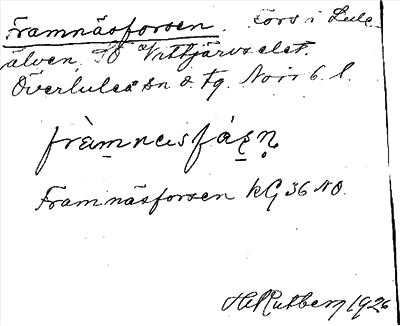 Framnäsforsen. fors i Lule
älven. SO Vittjärvselet.
Överluleå sn o. tg. Norr b. l.
fràmnasfáṣṇ
Framnäsforsen kG 36 NO.
H Rutberg 1926